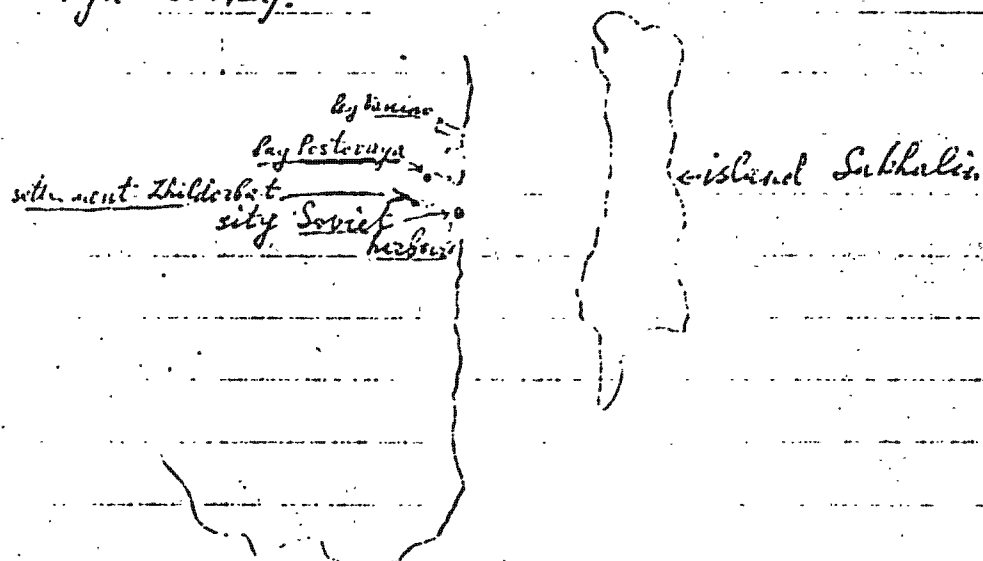 bay Vanino
bay Postovaya
settlement Zhilderbat
sity Soviet
harbour
island Sakhalin